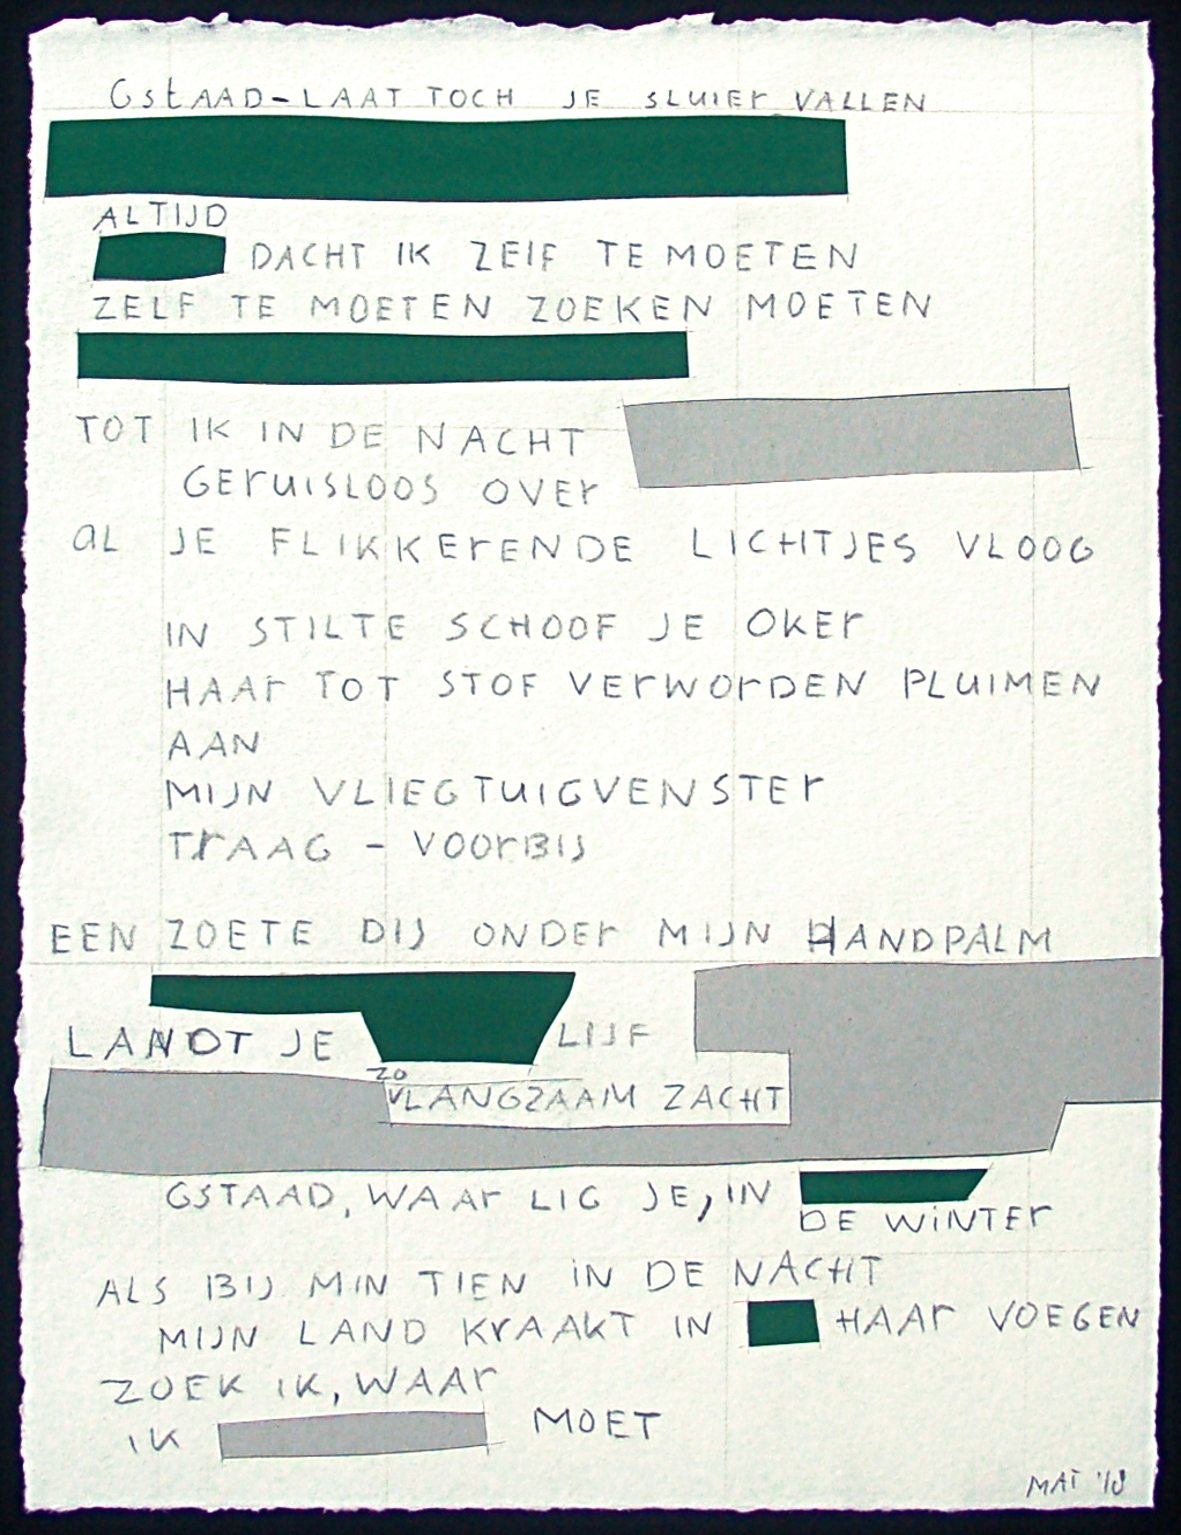 GstAAD-LAAT TOCH JE SLUIEr VALLEN
ALTIJD
DACHT IK ZElF TE MOETEN
ZELF TE MOETEN ZOEKEN MOETEN
TOT IK IN DE NACHT
GErUISLOOS OVEr
aL JE FLIKKErENDE LICHTJES VLOOG
IN STILTE SCHOOF JE OKEr
HAAr TOT STOF VErWOrDEN PLUIMEN
AAN
MIJN VLIEGTUIGVENSTEr
TrAAG - VOOrBIJ
EEN ZOETE DIJ ONDEr MIJN HANDPALM
LANDT JE LIJF
ZO
LANGZAAM ZACHT
GSTAAD, WAAr LIG JE, IN
DE WiNTEr
ALS BIJ MIN TIEN iN DE NACHT
MIJN LAND KrAAKT IN HAAr VOEGEN
ZOEK IK, WAAr
IK MOET
MAT '18